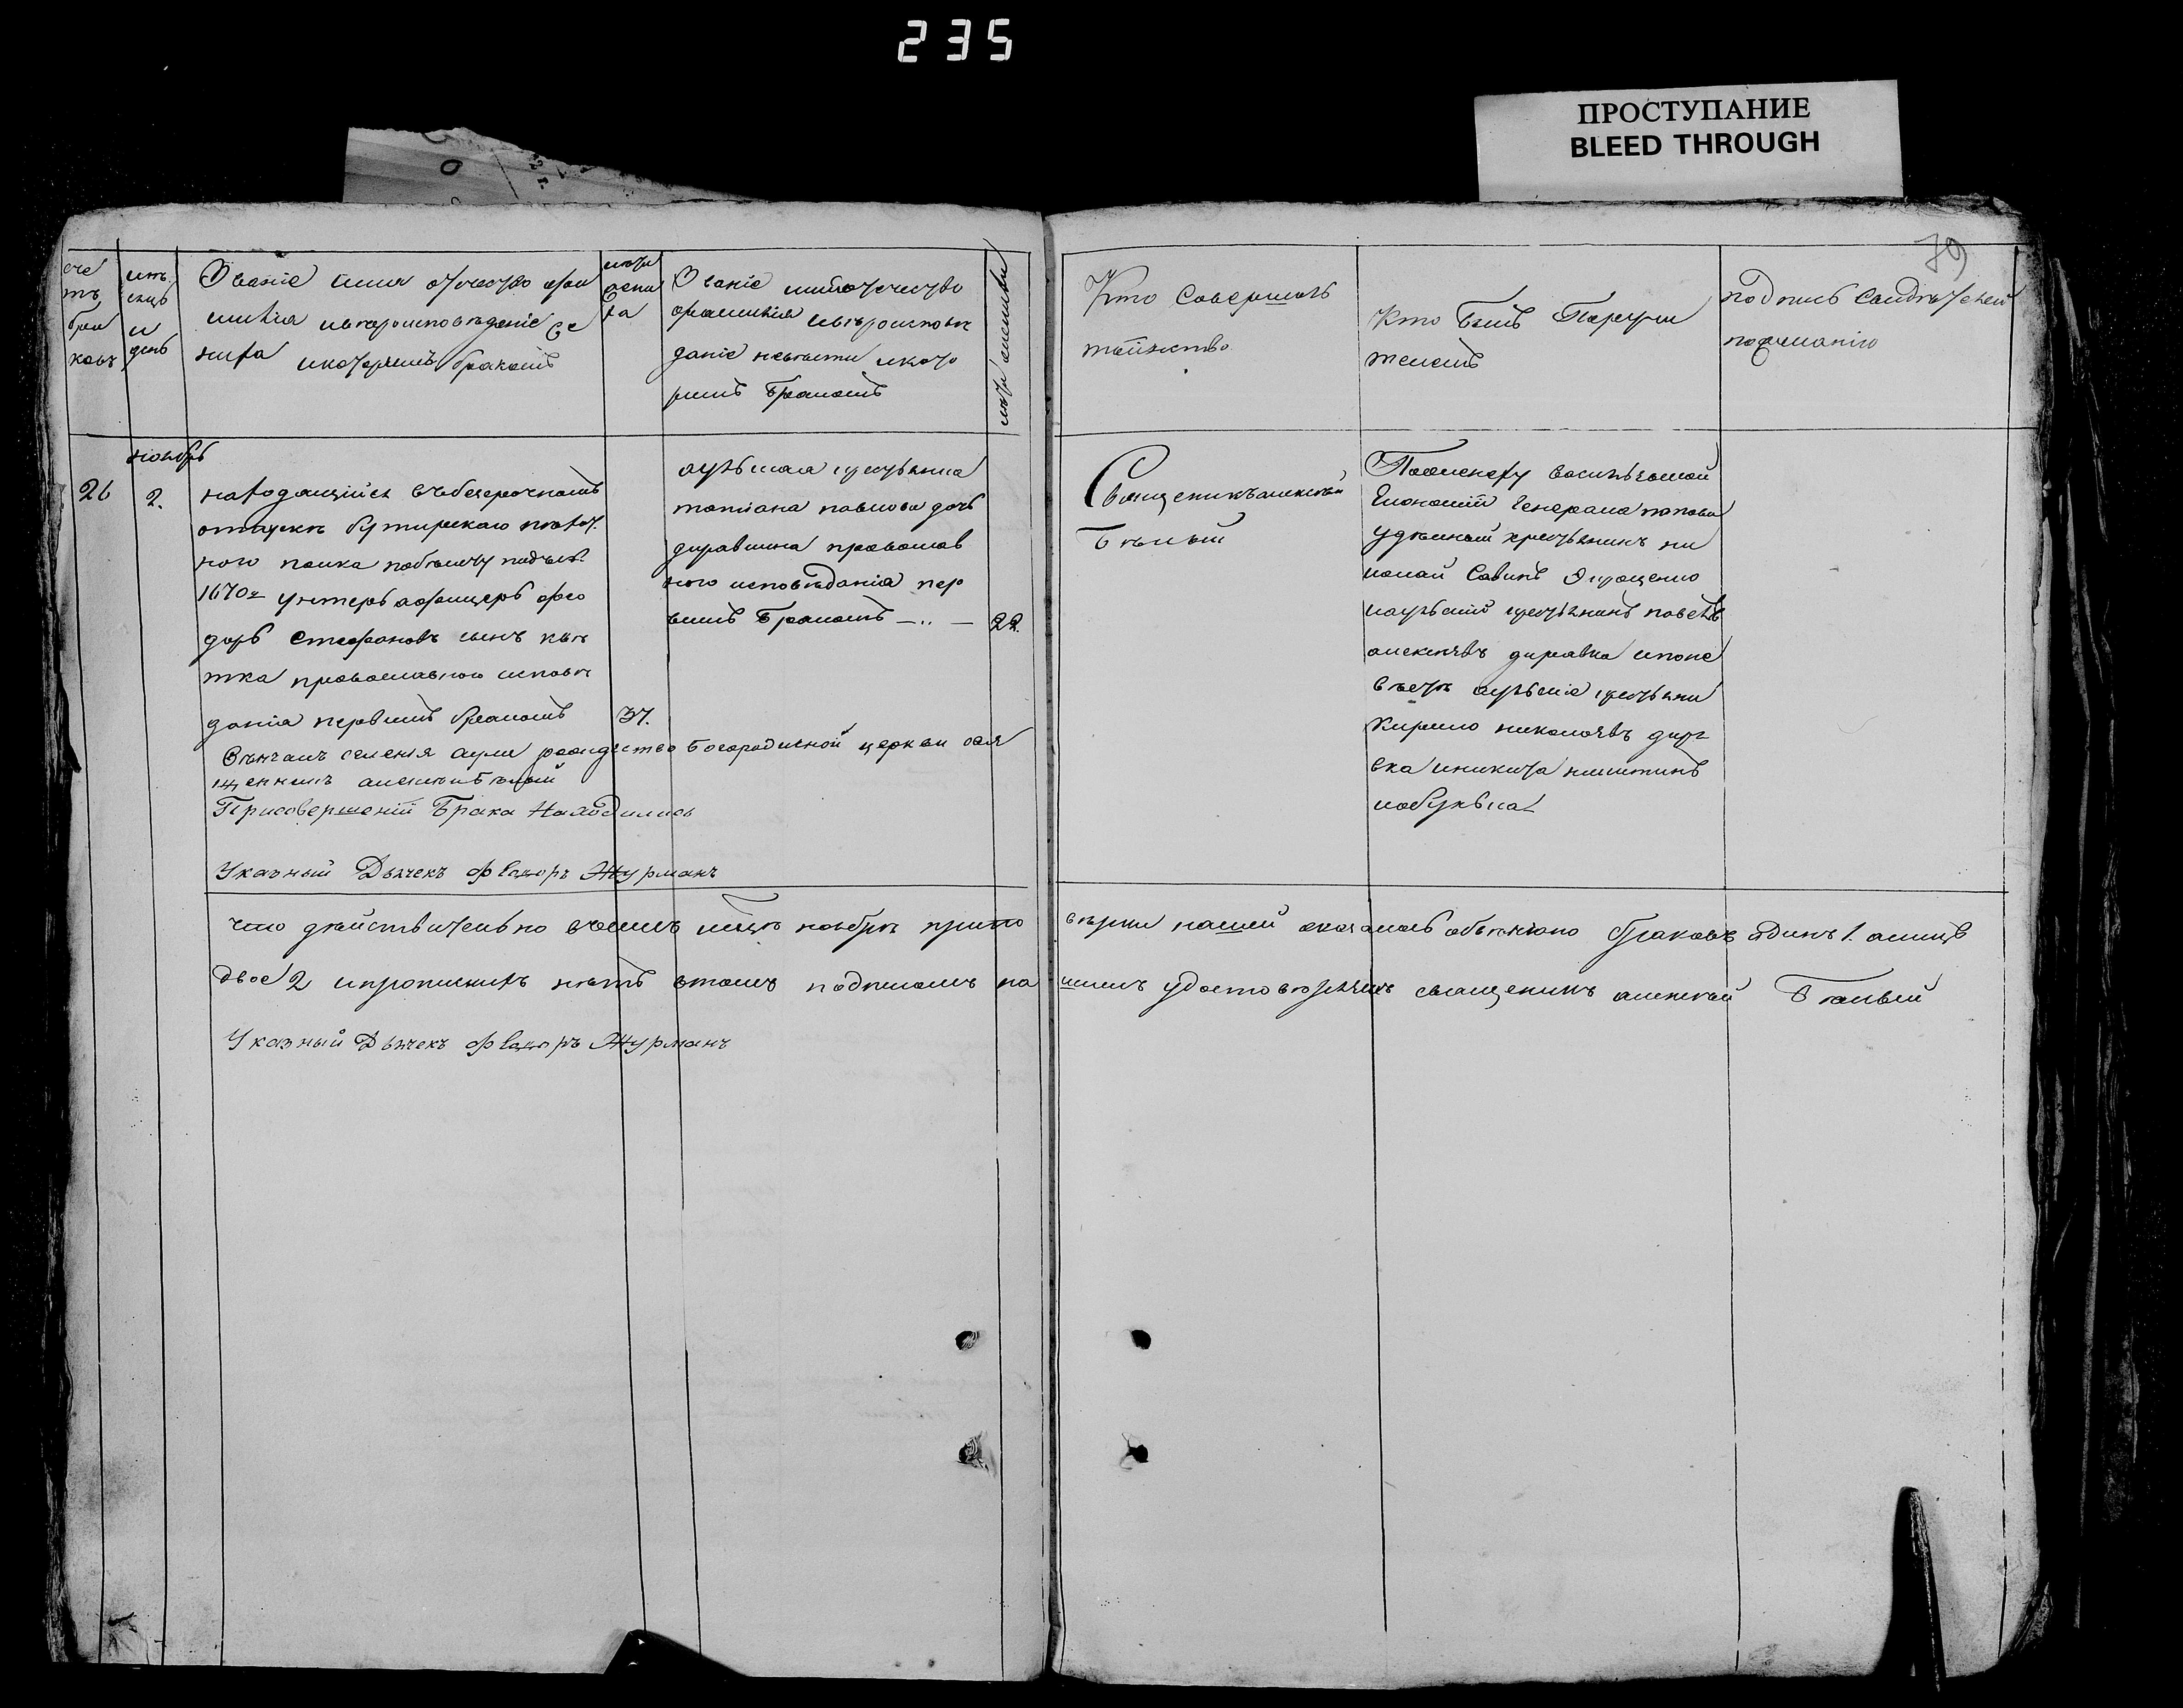 235
ПРОСТУПАНИЕ
BLEED THROUGH
79
сче
тъ
бра
ковъ
мѣ
сецъ
и
день
Званіе имя отчество фа
милія и вѣроисповѣданіе же
ниха и которымъ бракомъ
лѣта
жени
ха
Званіе имя отчество
фамилія и вѣроисповѣ
даніе невѣсты и кото
рымъ бракомъ
лѣта невѣсты
Кто совершалъ
таинство
Кто былъ Поручи
телемъ
подпись свидѣтелей
по желанію
ноябрь
26
2.
находящійся въ безсрочномъ
отпуску бутырскаго пѣхот
ного полка по билету подъ №
1670м унтеръ офицеръ фео
доръ стефановъ сынъ квѣ
тка православного исповѣ
данія первымъ бракомъ
37.
аульская крестьянка
татіана павлова дочь
дировкина православ
ного исповѣданія пер
вымъ бракомъ — „ —
22.
Священикъ алексѣй
Бѣлый
По женеху васильковской
Економіи генерала попова
удѣлный крестьянинъ ни
колай савинъ
аульскій крестьянинъ
алексѣевъ диравка и по не
вѣстѣ аульскіе крестьяни
Кирило николаевъ дира
вка и никита никитинъ
Вѣнчалъ селенія аула рождество Богородичной церкви свя
щенникъ алексѣй бѣлый
При совершеніи Брака Находились
Указный Дьячекъ Федоръ Журманъ
что дѣйствительно въ семъ м-цѣ ноябрѣ при по
вѣрки нашей оказалось обвѣнчано браковъ адинъ 1. а лицъ
двое 2 и пропусковъ нѣтъ въ томъ подписомъ на
шимъ удостовѣряемъ священикъ алексѣй Бѣлый
Указный Дьячекъ Федоръ Журманъ